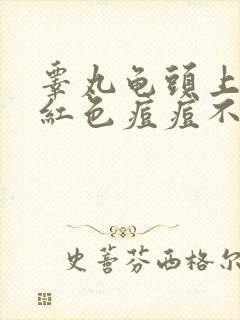 睾丸龟頭上
紅色痘痘不
史蒈芬西格尔